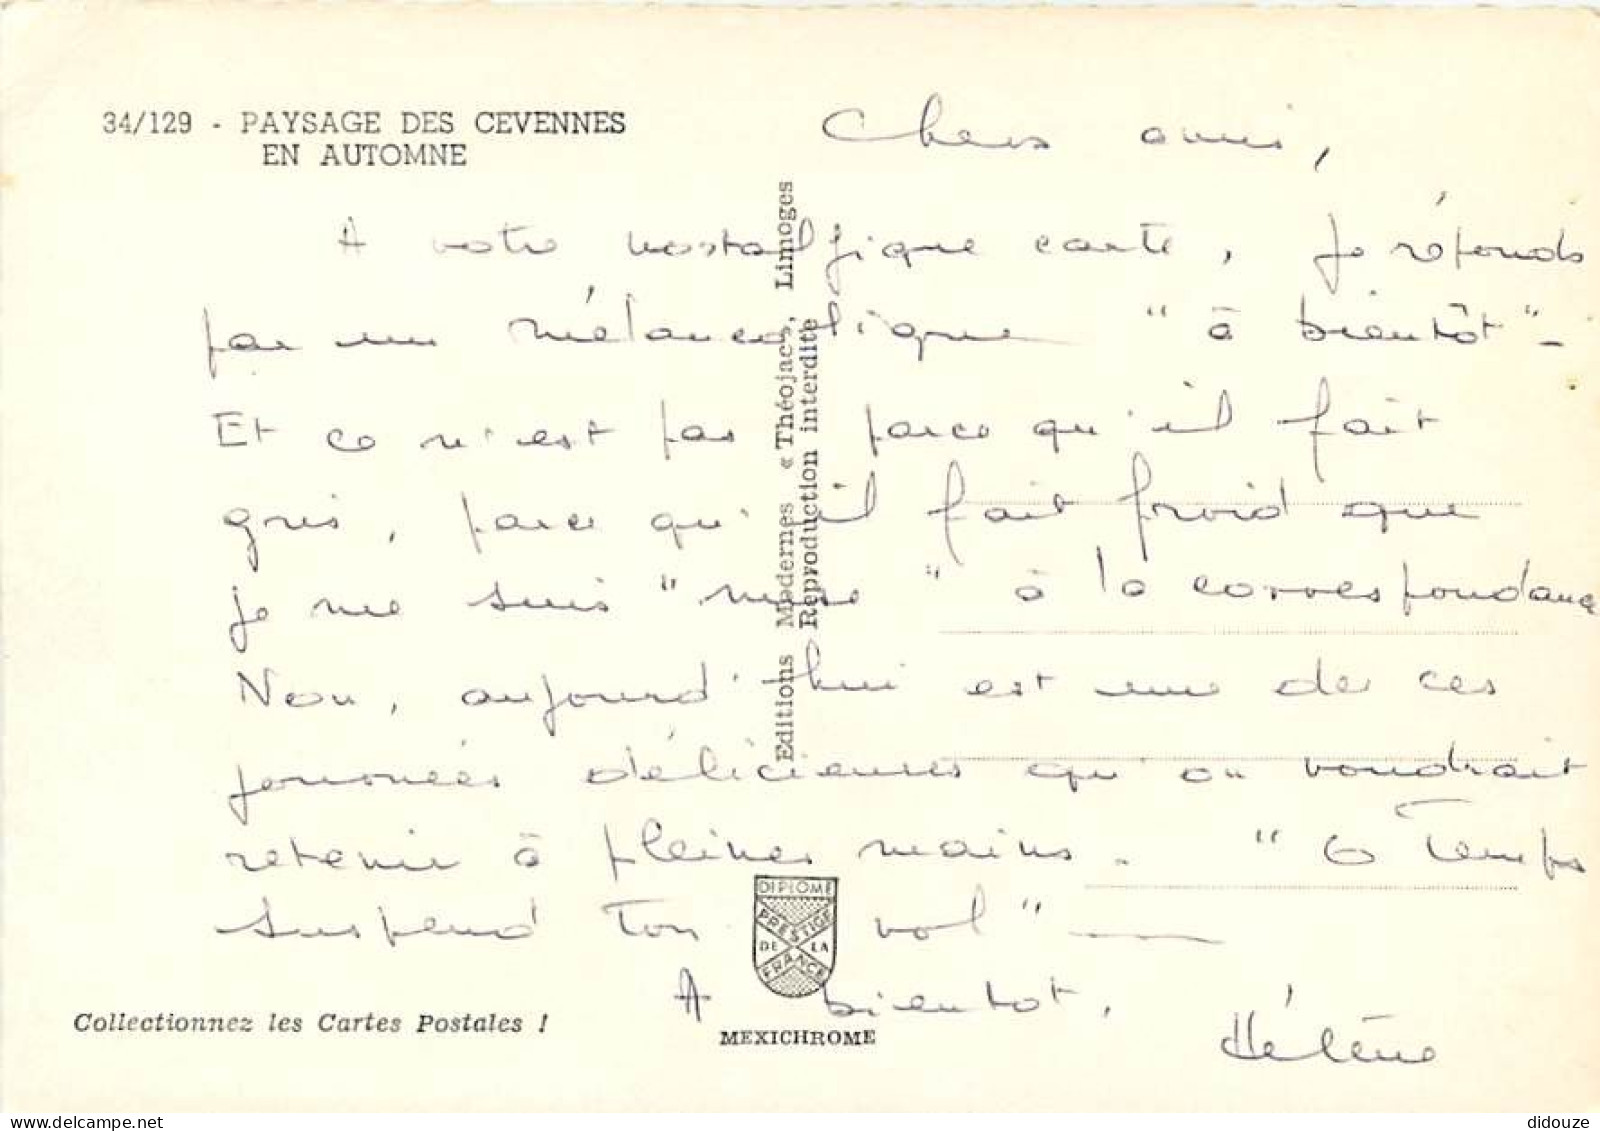 34/129 - PAYSAGE DES CEVENNES
EN AUTOMNE
Chers amis,
A votre nostalgique carte, je réponds
par un mélancolique "à bientôt" -
Et ce n'est pas parce qu'il fait
gris, parce qu'il fait froid que
je me suis "mise" à la correspondance
Non, aujourd'hui est une de ces
journées délicieuses qu'on voudrait
retenir à pleines mains. "O Temps
suspend ton vol" —
A bientôt,
Hélène
Editions Modernes « Théojac », Limoges
Reproduction interdite
DIPLOME
PRESTIGE
DE LA
FRANCE
MEXICHROME
Collectionnez les Cartes Postales !
delcampe.net
didouze